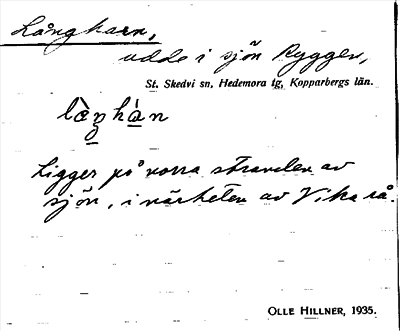 Långharn,
udde i sjön Ryggen,
St. Skedvi sn, Hedemora tg, Kopparbergs län.
Ligger på norra stranden av
sjön, i närheten av Vika rå.
OLLE HILLNER, 1935.